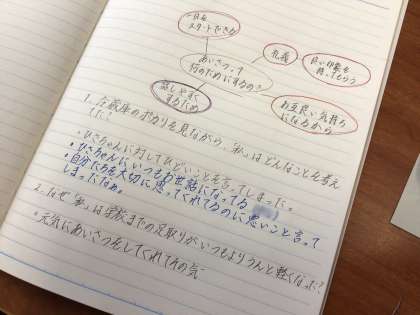 一日を
スタートできる
礼儀
良い印象を
持ってもらう
あいさつって
何のためにするの?
話しやすく
するため
お互い良い気持ち
になるから
1. 冷蔵庫のポカリを見ながら、「私」はどんなことを考え
た?
・ひさちゃんに対してひどいことを言ってしまった。
・ひさちゃんにいつもお世話になってる
・自分たちを大切に思ってくれてるのに悪いこと言って
しまったなぁ。
2. なぜ「私」は学校までの足取りがいつもよりうんと軽くなった?
・元気にあいさつをしてくれてるの気